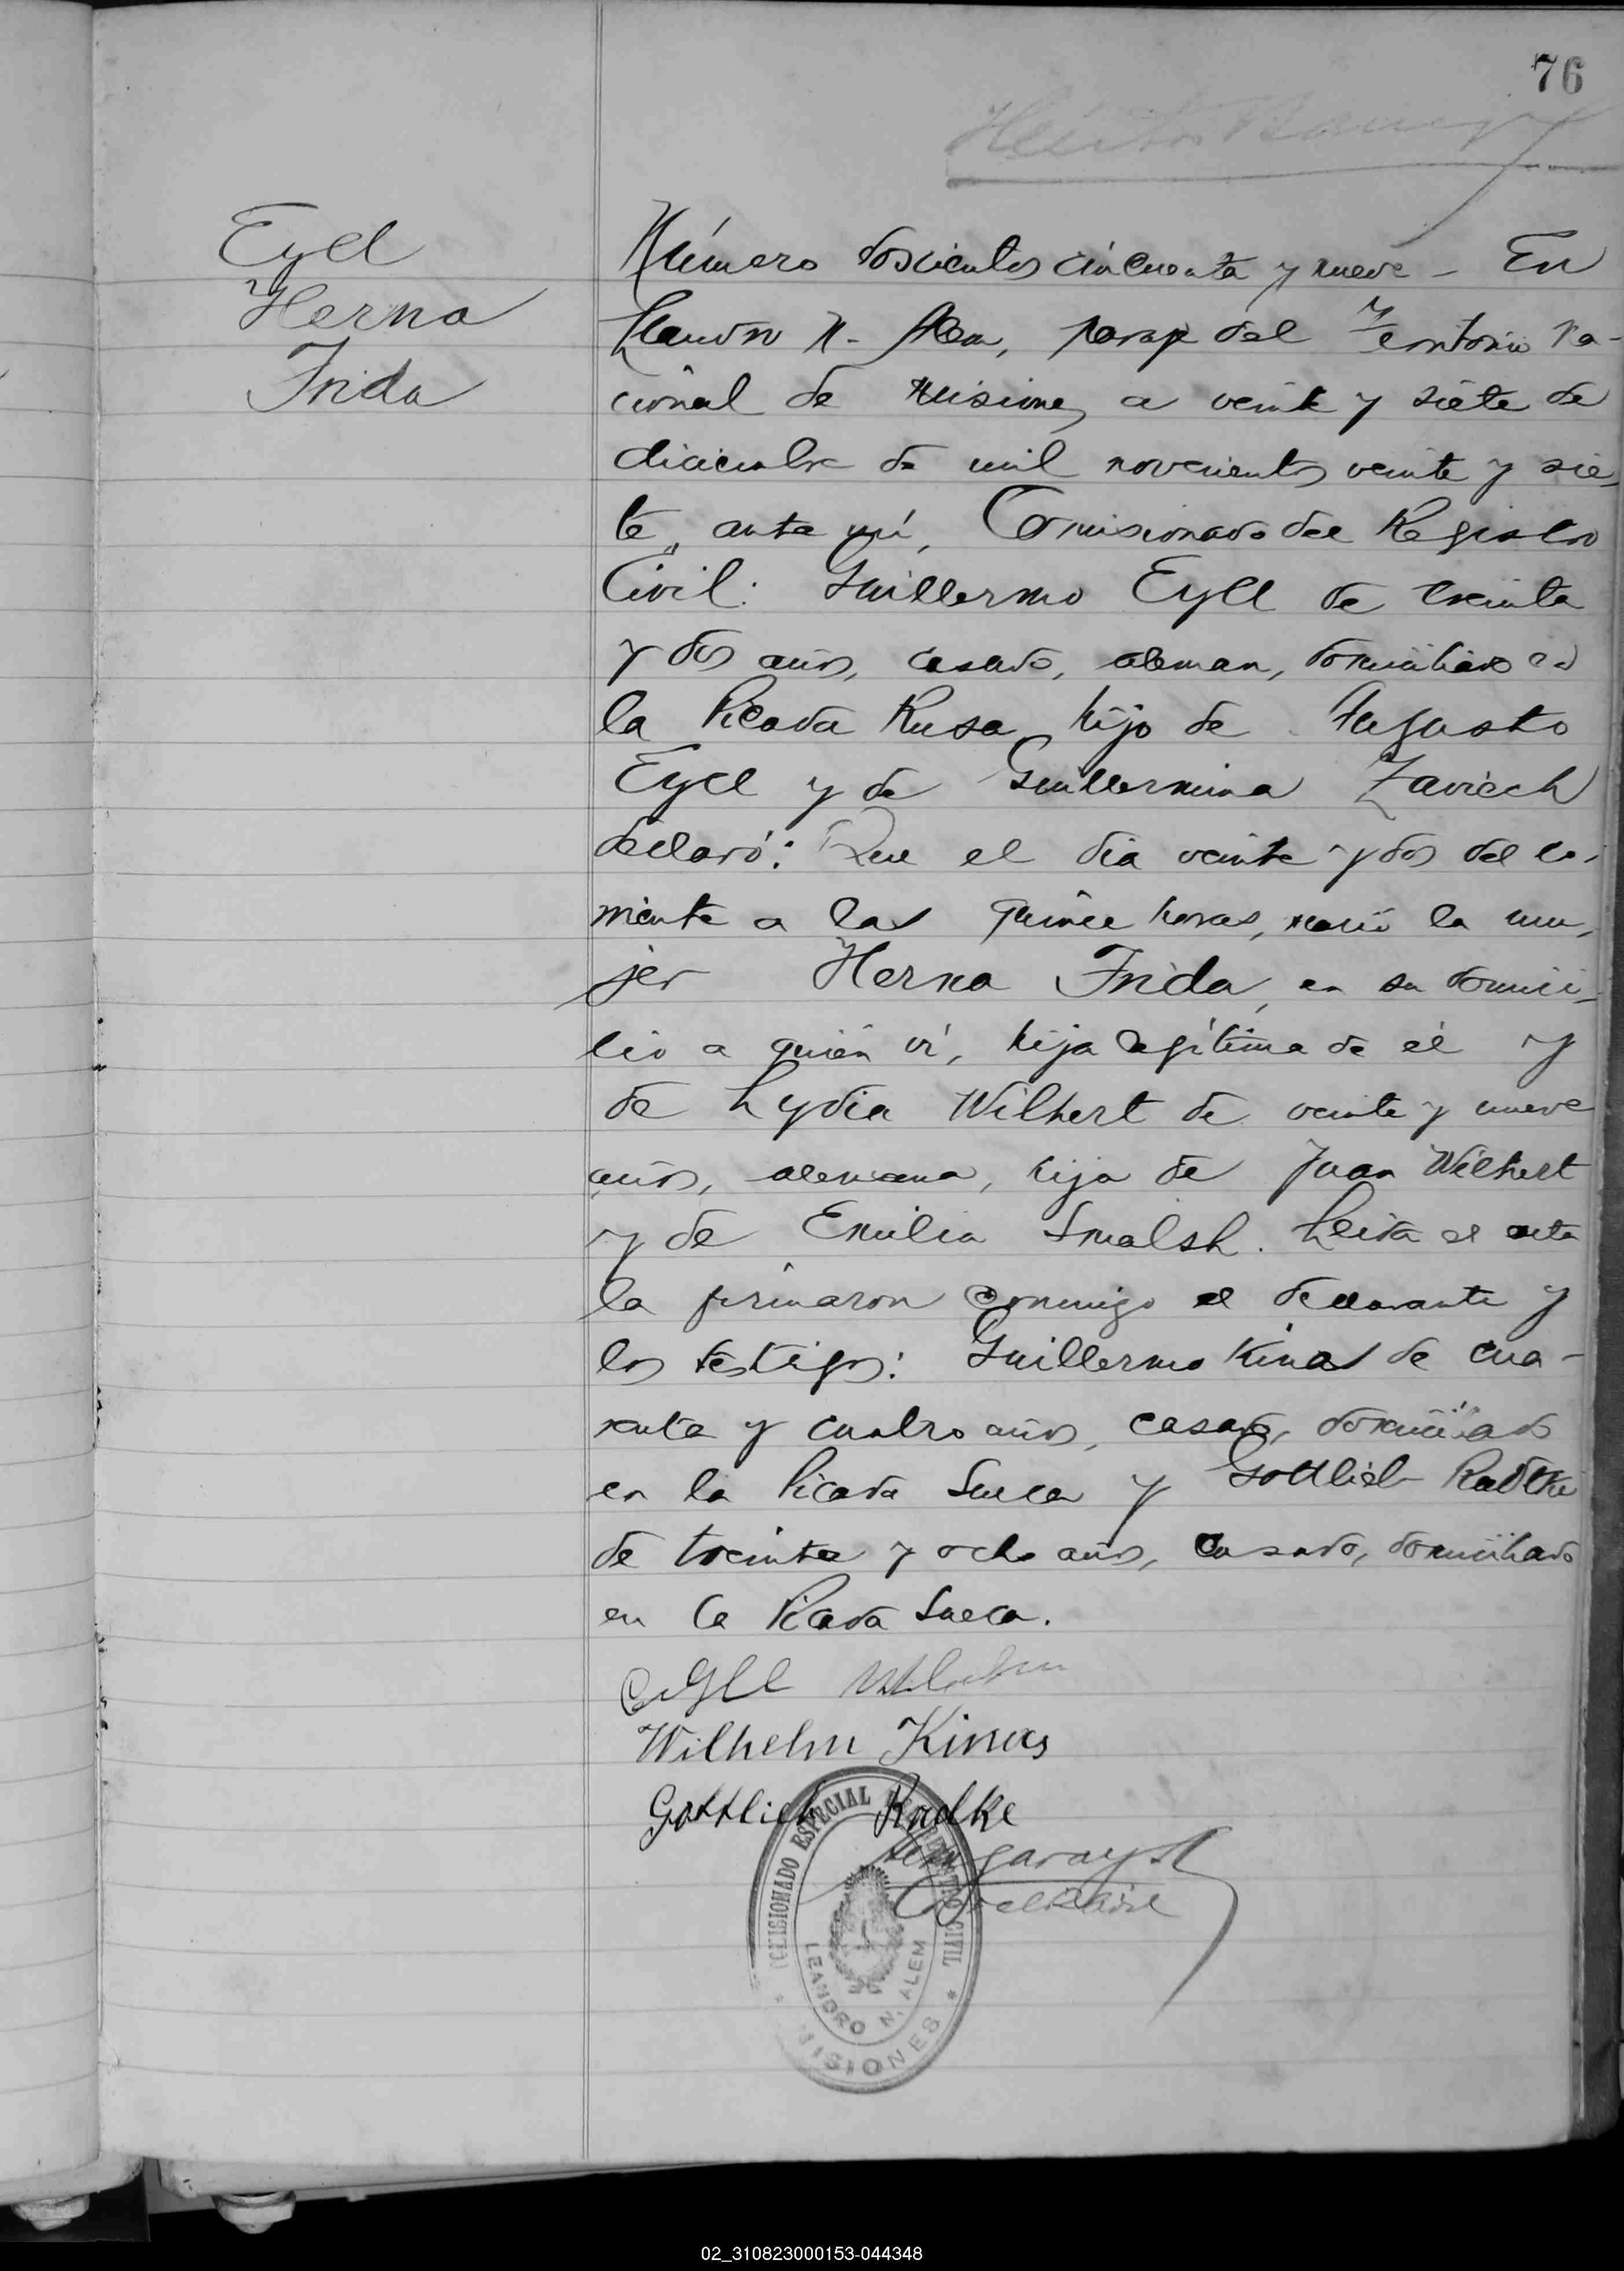 76
Eyll
Herna
Frida
Número doscientos cincuenta y nueve - En
Leandro N. Alem, paraje del Territorio Na-
cional de Misiones, a veinte y siete de
diciembre de mil novecientos veinte y sie-
te, ante mí, Comisionado del Registro
Civil: Guillermo Eyll de treinta
y dos años, casado, aleman, domiciliado en
la Picada Rusa, hijo de Augusto
Eyll y de Guillermina Zaviech
declaró: Que el dia veinte y dos del co-
rriente a las quince horas, nació la mu-
jer Herna Frida, en su domici-
lio a quién ví, hija legítima de él y
de Lydia Wilhert de veinte y nueve
años, alemana, hija de Juan Wilhert
y de Emilia Smalsh. Leida el acta
la firmaron conmigo el declarante y
los testigos: Guillermo Kinas de cua-
renta y cuatro años, casado, domiciliado
en la Picada Sueca y Gottlieb Radtke
de treinta y ocho años, casado, domiciliado
en la Picada Sueca.
Eyll Wilhelm
Wilhelm Kinas
Gottlieb Radke
COMISIONADO ESPECIAL DEL REGISTRO CIVIL
LEANDRO N. ALEM
* MISIONES *
02_310823000153-044348